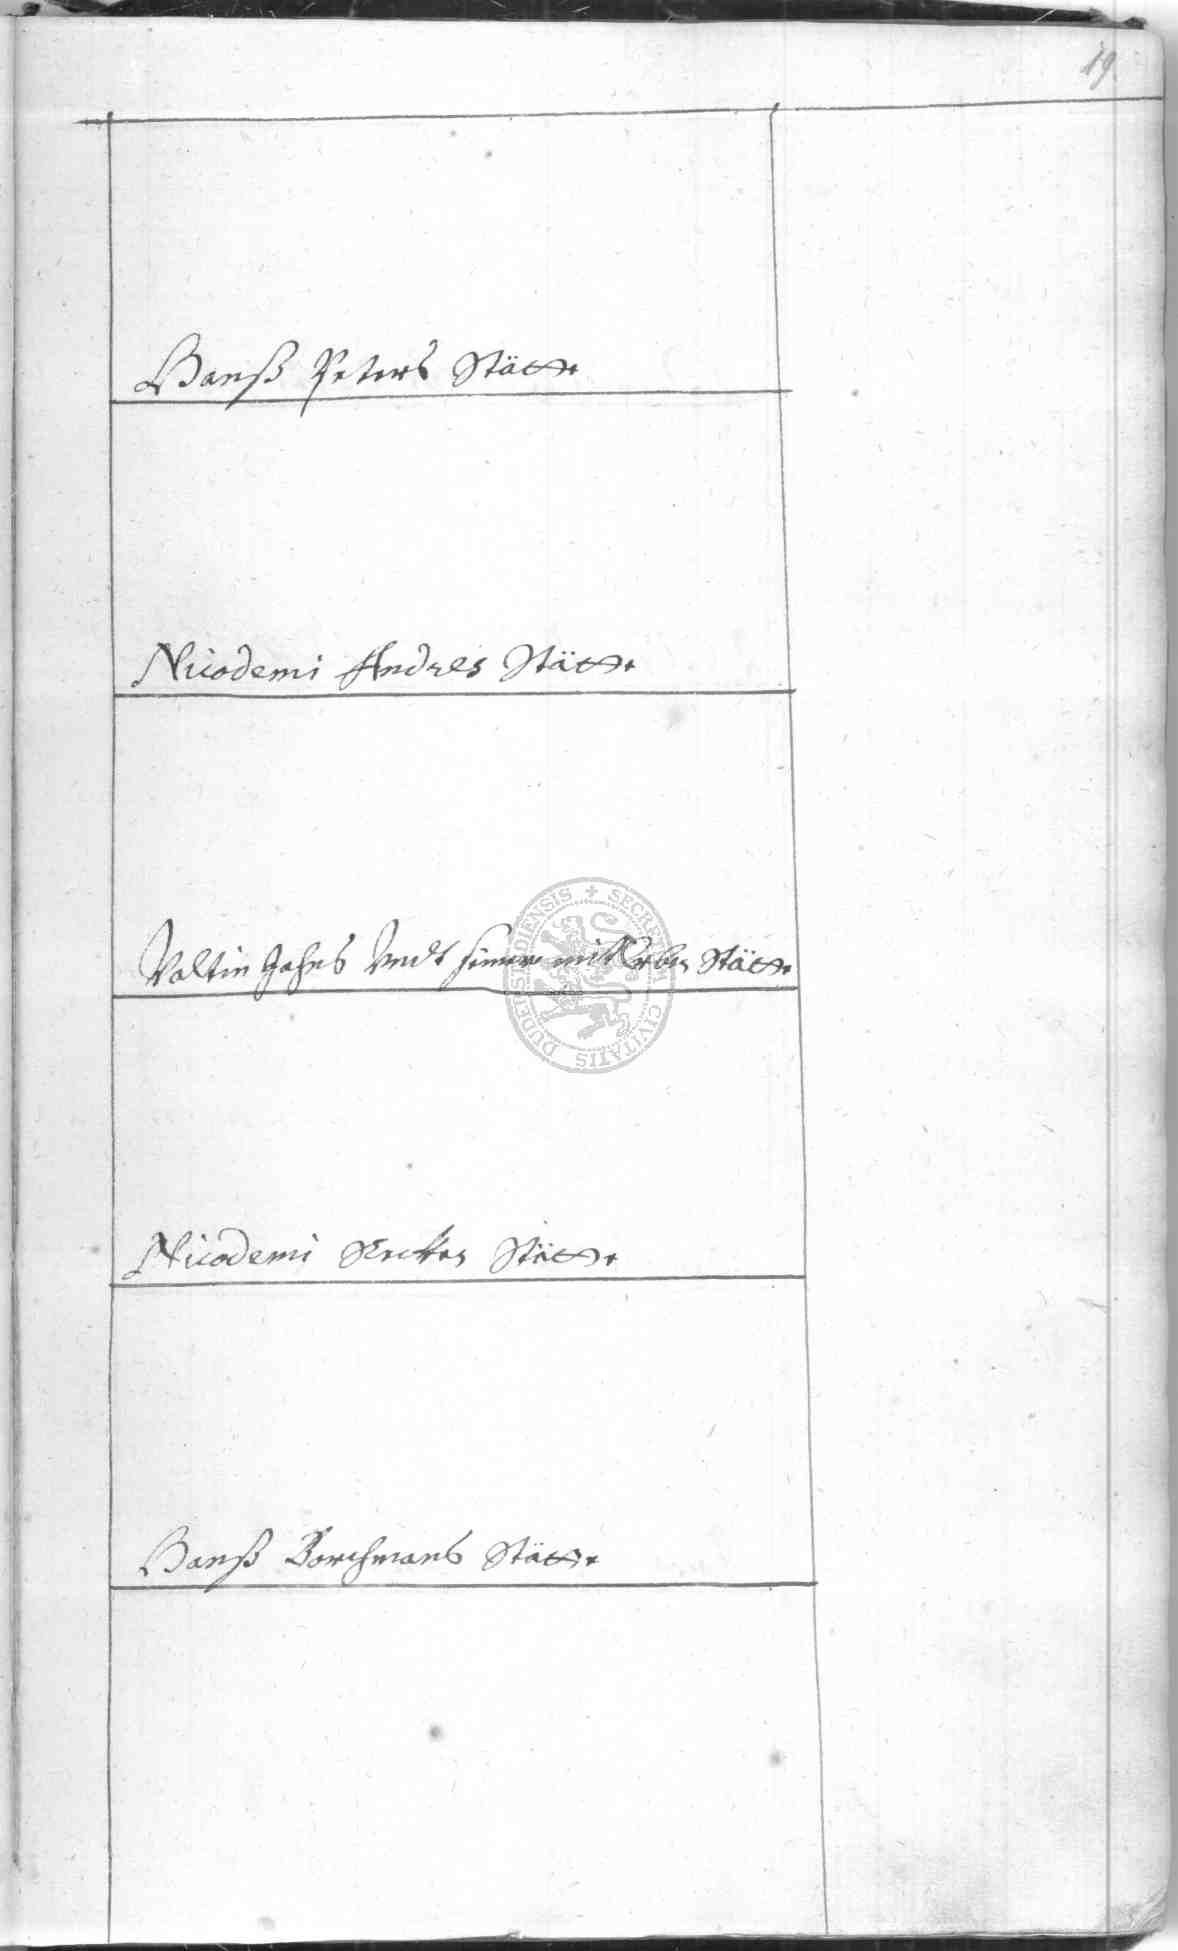 19
Hanß Peters Stätte
Nicodemi Andres Stätte
Valtin Jahns Vndt seiner mitt Erben Stätte
Nicodemi Stätte
Hanß Borchmans Stätte
SECRETU CIVITATIS DUDERSTADIENSIS